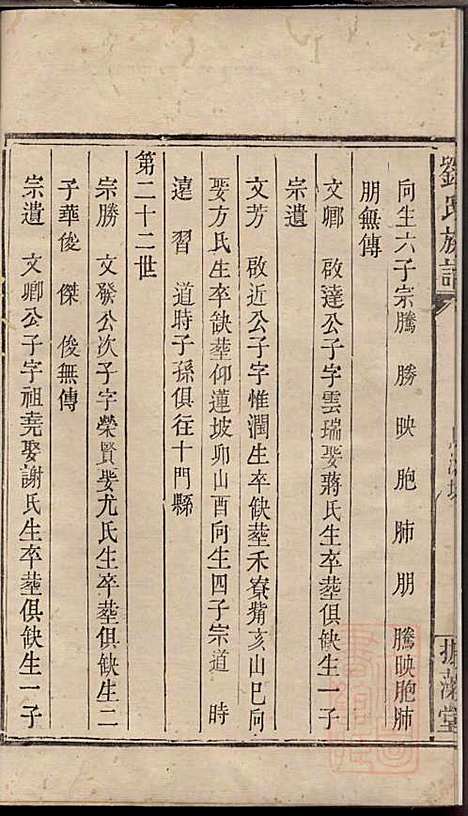 劉氏族譜
振藻堂
向生六子宗騰 勝 映 胞 肺 朋 騰映胞肺
朋無傳
文卿 啟達公子字雲瑞娶蔣氏生卒塟俱缺生一子
宗遺
文芳 啟近公子字惟潤生卒缺塟禾寮觜亥山巳向
娶方氏生卒缺塟仰蓮坡卯山酉向生四子宗道 時
達 習 道時子孫俱往十門縣
第二十二世
宗勝 文發公次子字榮賢娶尤氏生卒塟俱缺生二
子華俊 傑 俊無傳
宗遺 文卿公子字祖堯娶謝氏生卒塟俱缺生一子